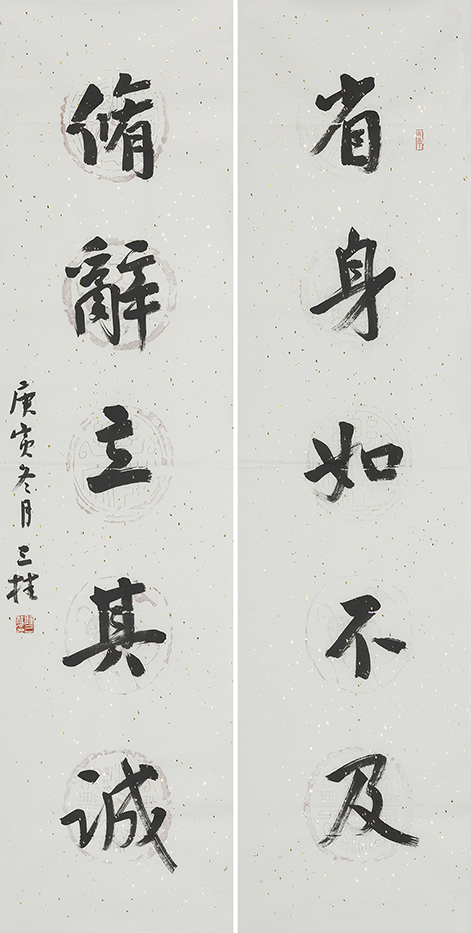 省身如不及
脩辭立其誠
庚寅冬月 三桂